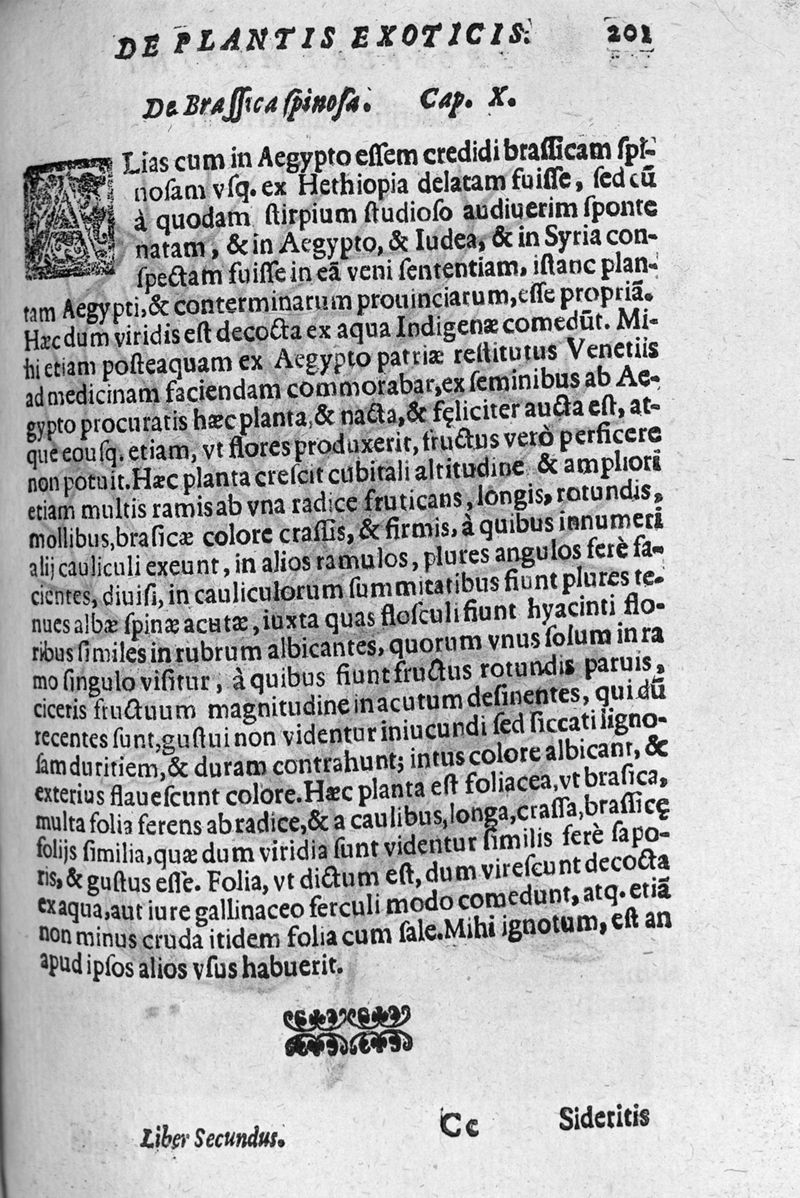 DE PLANTIS EXOTICIS. 201
De Brassica spinosa. Cap. X.
ALias cum in Aegypto essem credidi brassicam spi-
nosam vsq. ex Hethiopia delatam fuisse, sed cū
à quodam stirpium studioso audiuerim sponte
natam, & in Aegypto, & Iudea, & in Syria con-
spectam fuisse in eā veni sententiam, istanc plan-
tam Aegypti, & conterminarum prouinciarum, esse propriā.
Hæc dum viridis est decocta ex aqua Indigenæ comedūt. Mi-
hi etiam posteaquam ex Aegypto patriæ restitutus Venetiis
ad medicinam faciendam commorabar, ex seminibus ab Ae-
gypto procuratis hæc planta, & nacta, & fęliciter aucta est, at-
que eousq. etiam, vt flores produxerit, fructus verò perficere
non potuit. Hæc planta crescit cubitali altitudine & ampliori
etiam multis ramis ab vna radice fruticans, longis, rotundis,
mollibus, brasicæ colore crassis, & firmis, à quibus innumeri
alij cauliculi exeunt, in alios ramulos, plures angulos ferè fa-
cientes, diuisi, in cauliculorum summitatibus fiunt plures te-
nues albæ spinæ acutæ, iuxta quas flosculi fiunt hyacinti flo-
ribus similes in rubrum albicantes, quorum vnus solum in ra
mo singulo visitur, à quibus fiunt fructus rotundis paruis,
ciceris fructuum magnitudine in acutum desinentes, qui dū
recentes sunt, gustui non videntur iniucundi sed siccati ligno-
sam duritiem, & duram contrahunt; intus colore albicant, &
exterius flauescunt colore. Hæc planta est foliacea, vt brasica,
multa folia ferens ab radice, & a caulibus, longa, crassa, brassicę
folijs similia, quæ dum viridia sunt videntur similis ferè sapo-
ris, & gustus esse. Folia, vt dictum est, dum virescunt decocta
ex aqua, aut iure gallinaceo ferculi modo comedunt, atq. etiā
non minus cruda itidem folia cum sale. Mihi ignotum, est an
apud ipsos alios vsus habuerit.
Liber Secundus. Cc Sideritis